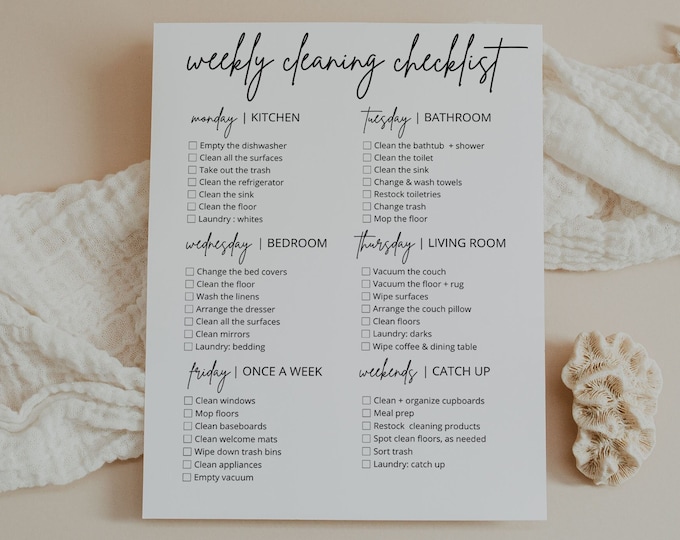 weekly cleaning checklist
monday | KITCHEN
Empty the dishwasher
Clean all the surfaces
Take out the trash
Clean the refrigerator
Clean the sink
Clean the floor
Laundry : whites
tuesday | BATHROOM
Clean the bathtub + shower
Clean the toilet
Clean the sink
Change & wash towels
Restock toiletries
Change trash
Mop the floor
wednesday | BEDROOM
Change the bed covers
Clean the floor
Wash the linens
Arrange the dresser
Clean all the surfaces
Clean mirrors
Laundry: bedding
thursday | LIVING ROOM
Vacuum the couch
Vacuum the floor + rug
Wipe surfaces
Arrange the couch pillow
Clean floors
Laundry: darks
Wipe coffee & dining table
friday | ONCE A WEEK
Clean windows
Mop floors
Clean baseboards
Clean welcome mats
Wipe down trash bins
Clean appliances
Empty vacuum
weekends | CATCH UP
Clean + organize cupboards
Meal prep
Restock cleaning products
Spot clean floors, as needed
Sort trash
Laundry: catch up